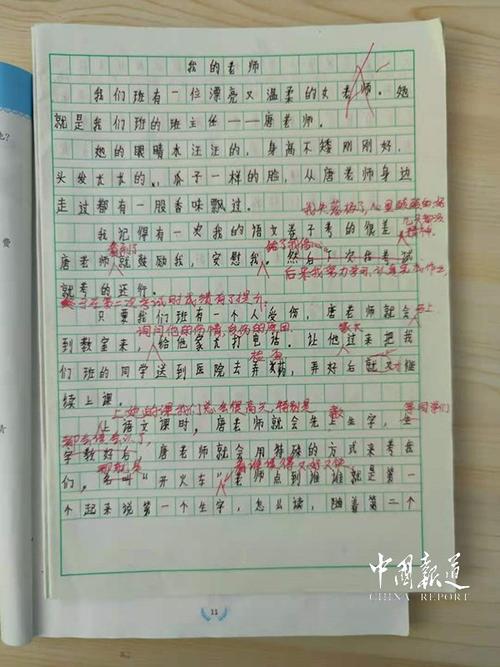 我的老师
我们班有一位漂亮又温柔的女老师。她
就是我们班的班主任——唐老师。
她的眼睛水汪汪的,身高不矮刚刚好,
头发长长的,瓜子一样的脸,从唐老师身边
走过都有一股香味飘过。
我失落极了,心里
我记得有一次我的语文卷子考的很差
看到后
给了我信心
唐老师就鼓励我,安慰我。然后下次考试
后来我努力学习,认真完成作业
就考的还行。
终于在第二次考试时成绩有了提升。
只要我们班有一个人受伤,唐老师就会马上
询问他的伤情,受伤的原因
家长
到教室来,给他家长打电话。让他过来把我
检查
们班的同学送到医院去弄药,弄好后就又才继
续上课。
上她的课我们总会很高兴,特别是
教
等同学们
上语文课时,唐老师就会先上生字,生
都会读会认了,
字教好后,唐老师就会用特殊的方式来考我
那就是
看谁读得又好又快
们。名叫“开火车”老师点到谁谁就是第一
个起来说第一个生字,怎么读,随着第二个
11
中国报道
CHINA REPORT